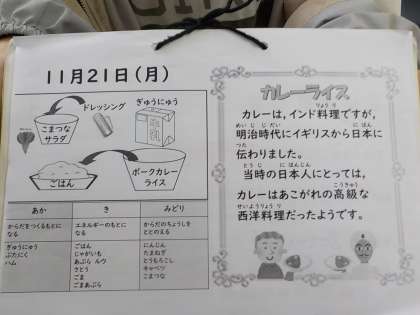 11月21日(月)
ドレッシング
ぎゅうにゅう
こまつな
サラダ
ごはん
ポークカレー
ライス
あか
き
みどり
からだをつくるもとに
なる
エネルギーのもとに
なる
からだのちょうしを
ととのえる
ぎゅうにゅう
ぶたにく
ハム
ごはん
じゃがいも
あぶら ルウ
さとう
ごま
ごまあぶら
にんじん
たまねぎ
とうもろこし
キャベツ
こまつな
カレーライス
りょうり
カレーは,インド料理ですが,
めいじじだい にほん
明治時代にイギリスから日本に
つた
伝わりました。
とうじ にほんじん
当時の日本人にとっては,
こうきゅう
カレーはあこがれの高級な
せいようりょうり
西洋料理だったようです。